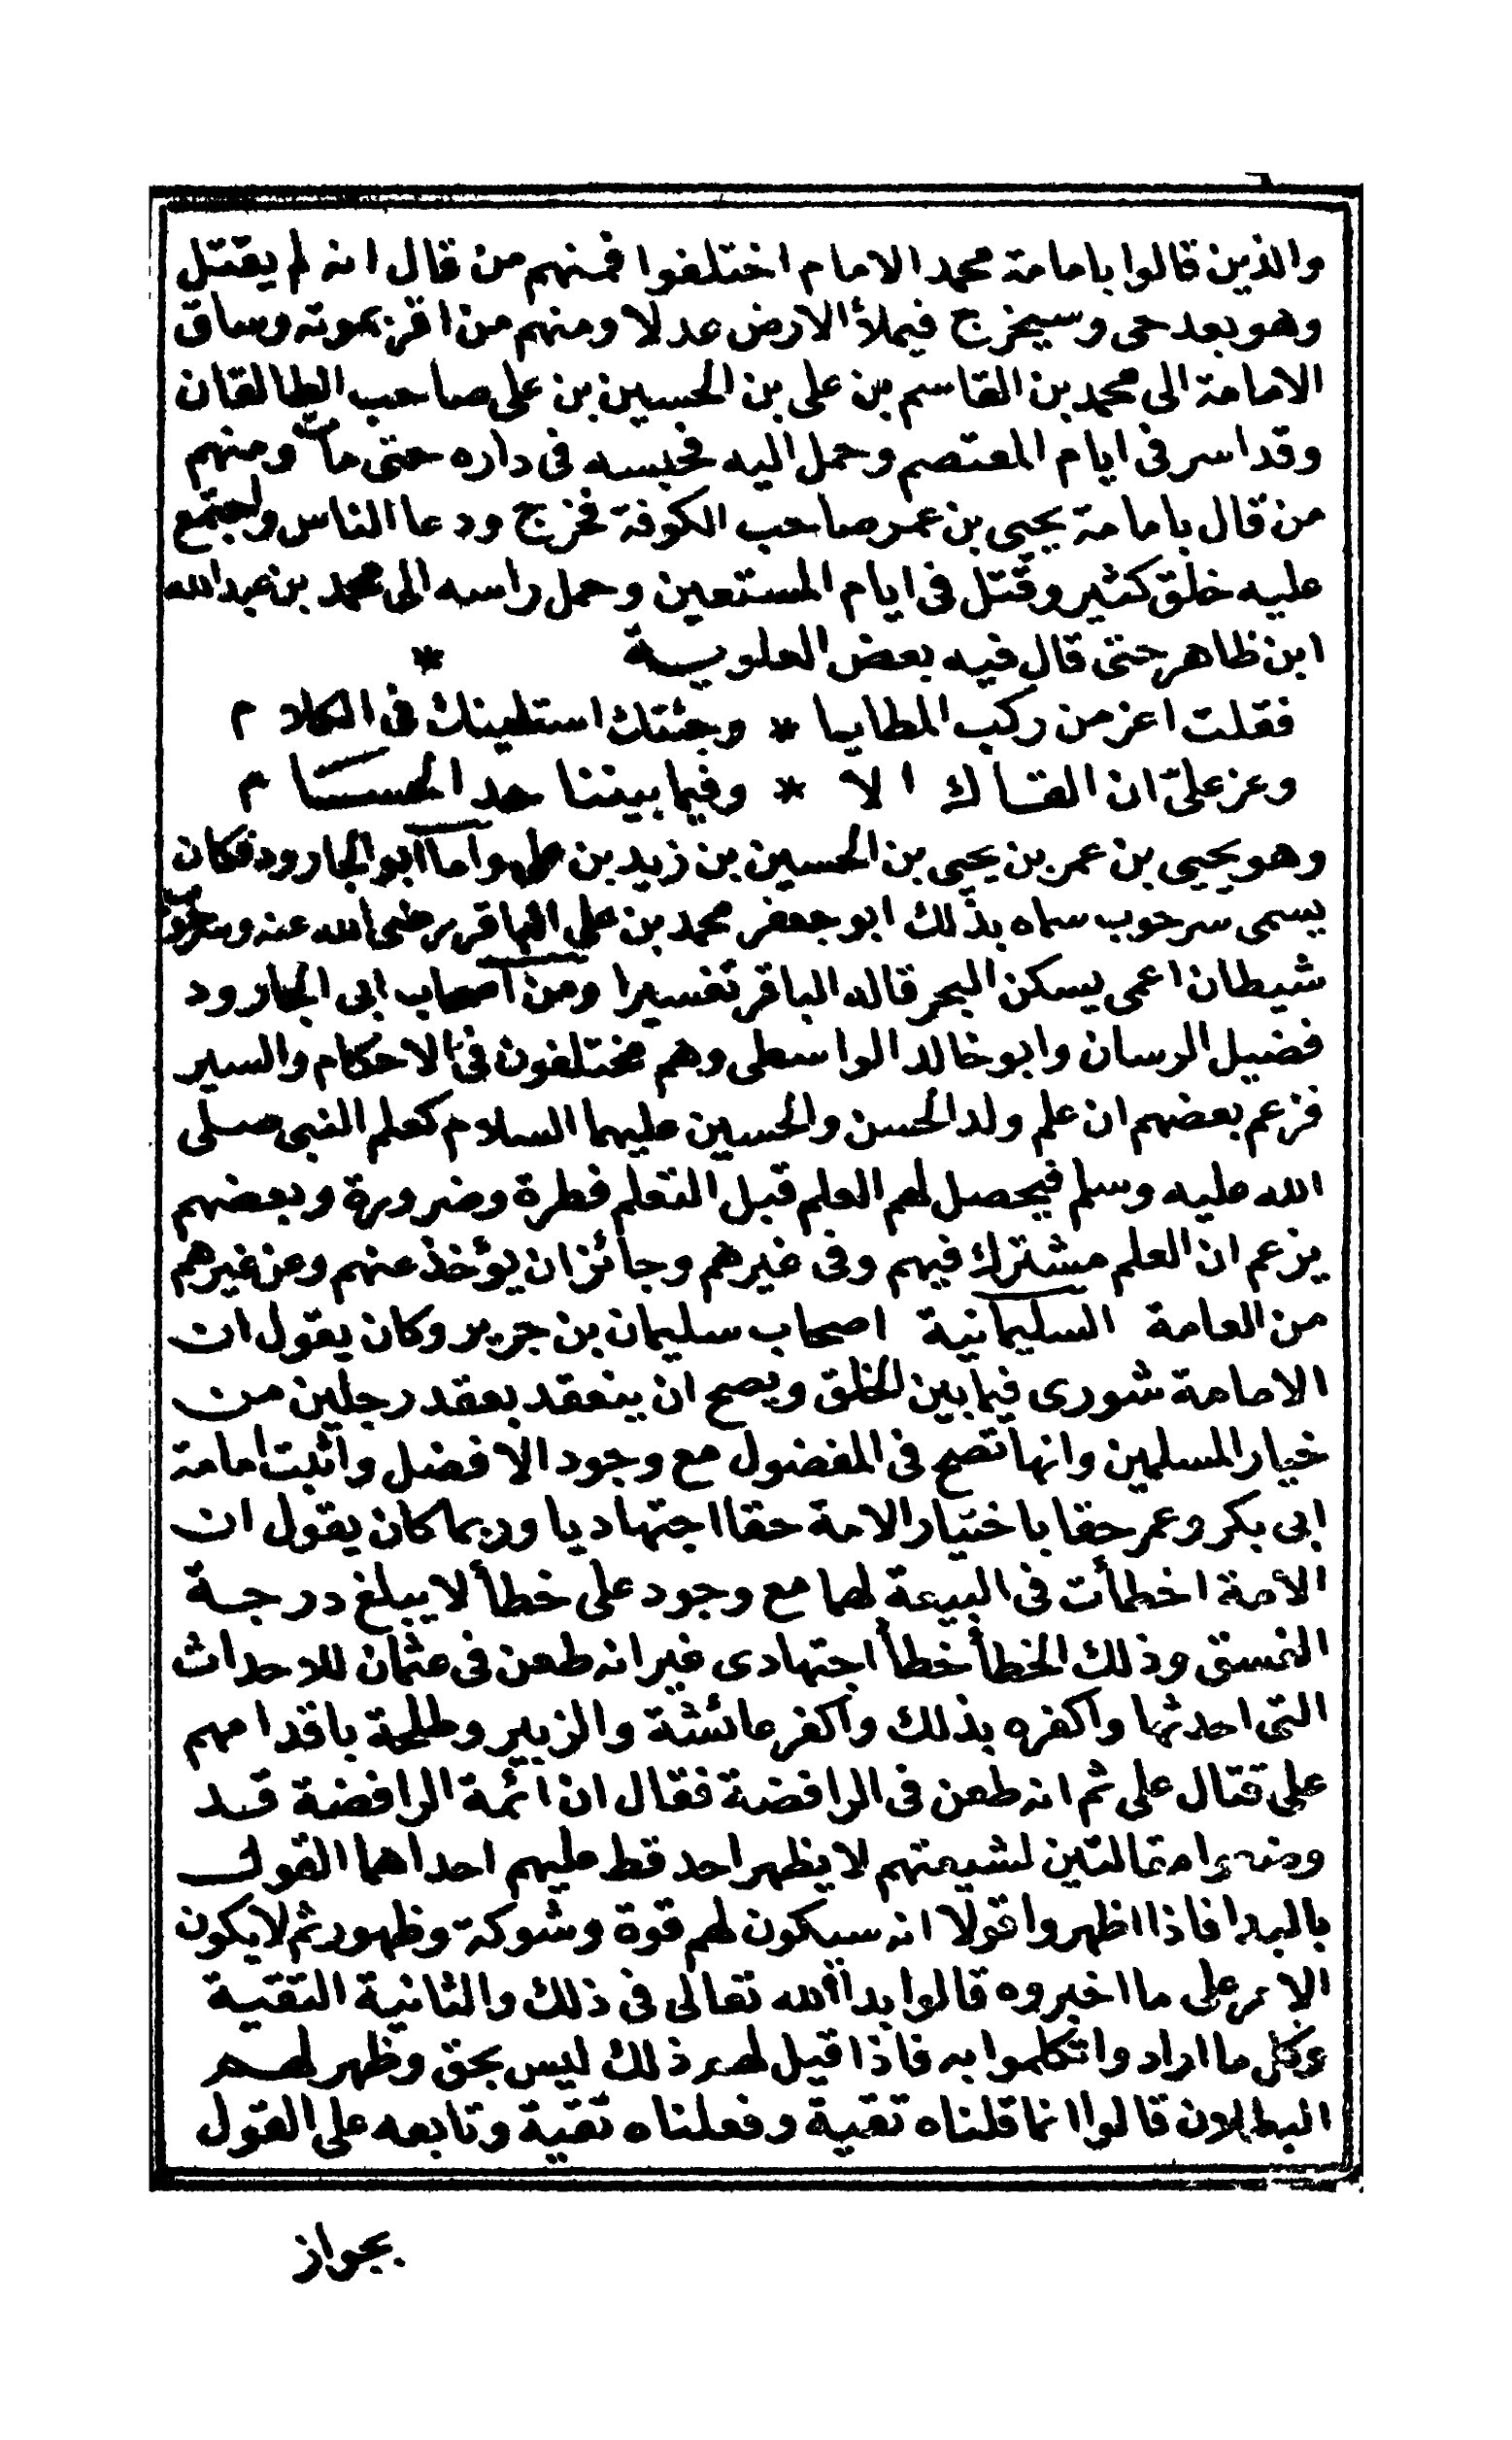 والذين قالوا بامامة محمد الامام اختلفوا فمنهم من قال انه لم يقتل
وهو بعد حى وسيخرج فيملأ الارض عدلا ومنهم من اقر بموته وساق
الامامة الى محمد بن القاسم بن على بن الحسين بن على صاحب الطالقان
وقد اسر فى ايام المعتصم وحمل اليه فحبسه فى داره حتى مات ومنهم
من قال بامامة يحيى بن عمر صاحب الكوفة فخرج ودعا الناس واجتمع
عليه خلق كثير وقتل فى ايام المستعين وحمل راسه الى محمد بن عبدالله
ابن ظاهر حتى قال فيه بعض العلوية *
فقلت اعز من ركب المطايا * وجئتك استلينك فى الكلام
وعز علىّ ان القاك الا * وفيما بيننا حد الحسام
وهو يحيى بن عمر بن يحيى بن الحسين بن زيد بن على واما ابو الجارود فكان
يسمى سرحوب سماه بذلك ابو جعفر محمد بن على الباقر رضى الله عنه وسرحوب
شيطان اعمى يسكن البحر قاله الباقر تفسيرا ومن اصحاب ابى الجارود
فضيل الرسان وابو خالد الواسطى وهم مختلفون فى الاحكام والسير
فزعم بعضهم ان علم ولد الحسن والحسين عليهما السلام كعلم النبى صلى
الله عليه وسلم فيحصل لهم العلم قبل التعلم فطرة وضرورة وبعضهم
يزعم ان العلم مشترك فيهم وفى غيرهم وجائز ان يؤخذ عنهم وعن غيرهم
من العامة السليمانية اصحاب سليمان بن جرير وكان يقول ان
الامامة شورى فيما بين الخلق ويصح ان ينعقد بعقد رجلين من
خيار المسلمين وانها تصح فى المفضول مع وجود الافضل واثبت امامة
ابى بكر وعمر حقا باختيار الامة حقا اجتهاديا وربما كان يقول ان
الأمة اخطأت فى البيعة لهما مع وجود على خطأ لا يبلغ درجة
الفسق وذلك الخطأ خطأ اجتهادى غير انه طعن فى عثمان للاحداث
التى احدثها واكفره بذلك واكفر عائشة والزبير وطلحة باقدامهم
على قتال على ثم انه طعن فى الرافضة فقال ان ائمة الرافضة قد
وضعوا مقالتين لشيعتهم لا يظهر احد قط عليهم احداهما القول
بالبدا فاذا اظهروا قولا انه سيكون لهم قوة وشوكة وظهور ثم لا يكون
الامر على ما اخبروه قالوا بدأ الله تعالى فى ذلك والثانية التقية
وكل ما اراد واتكلموا به فاذا قيل لهم ذلك ليس بحق وظهر لهم
البطلان قالوا انما قلناه تقية وفعلناه تقية وتابعه على القول
بجواز